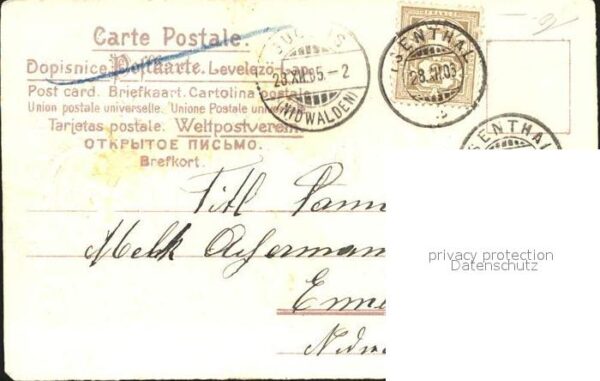 Carte Postale.
Dopisnice Postkarte. Levelező-
Post card. Briefkaart. Cartolina postale
Union postale universelle. Unione Postale
Tarjetas postale. Weltpostverein
ОТКРЫТОЕ ПИСЬМО.
Brefkort.
28.XII.05.-2
(NIDWALDEN)
ISENTHAL
28.XII.05
SENTHAL
Titl
Melk
Enne
Nidw
privacy protection
Datenschutz